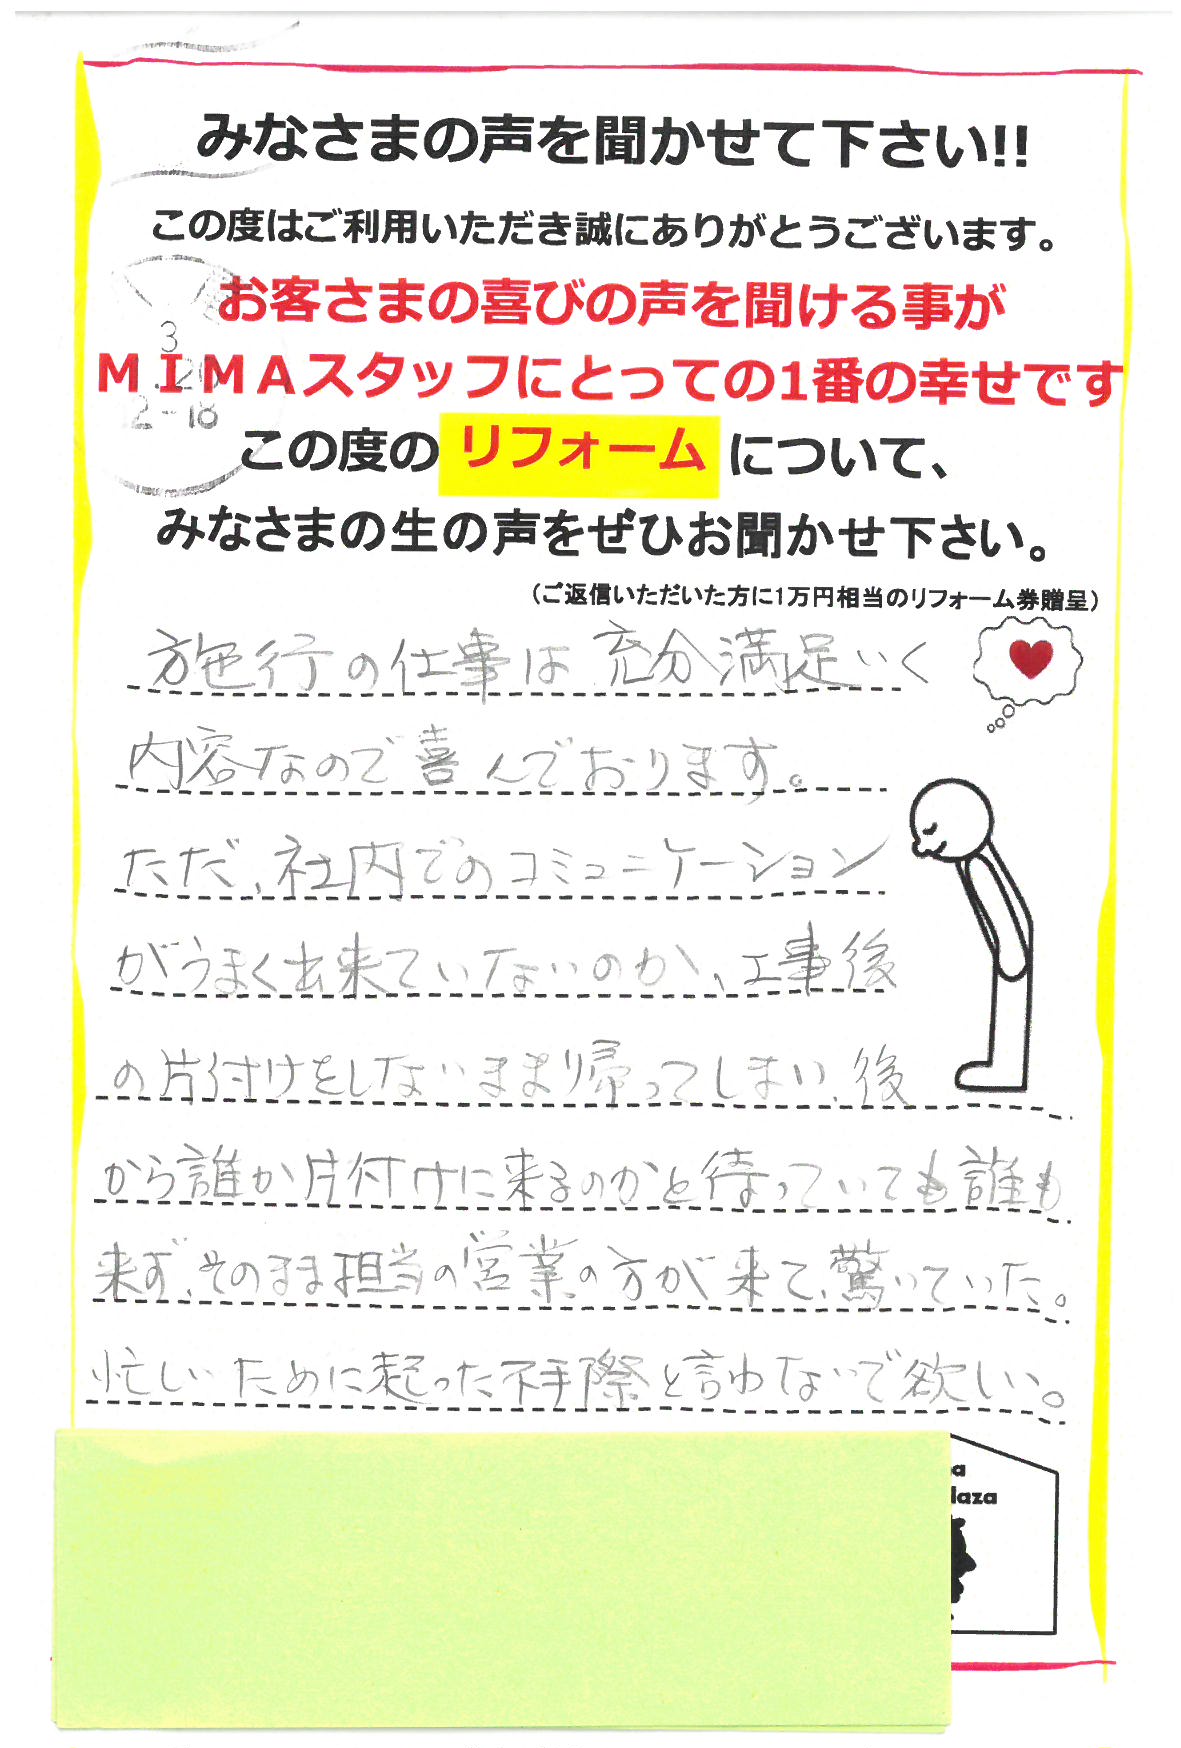 みなさまの声を聞かせて下さい!!
この度はご利用いただき誠にありがとうございます。
お客さまの喜びの声を聞ける事が
MIMAスタッフにとっての1番の幸せです
この度の リフォーム について、
みなさまの生の声をぜひお聞かせ下さい。
(ご返信いただいた方に1万円相当のリフォーム券贈呈)
3
2-18
施行の仕事は充分満足いく
内容なので喜んでおります。
ただ、社内でのコミュニケーション
がうまく出来ていないのか、工事後
の片付けをしないまま帰ってしまい、後
から誰か片付けに来るのかと待っていても誰も
来ず、そのまま担当の営業の方が来て、驚いていた。
忙しいために起った不手際と言わないで欲しい。
a
laza